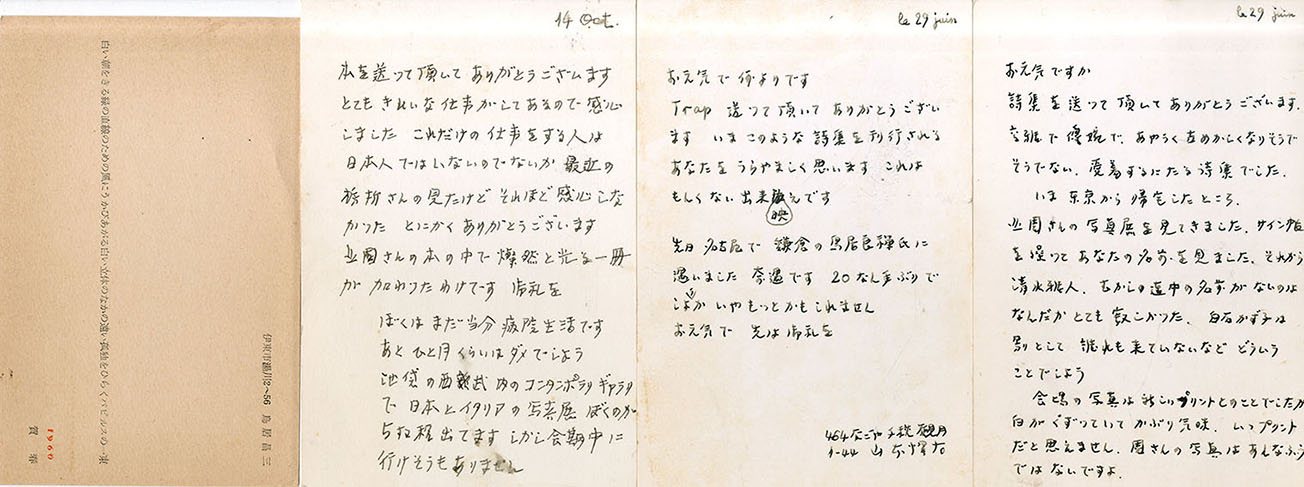 白い朝をきる線の直線のための風にうかびあがる白い立体のなかの遠い孤独をひらくパピルスの一束
伊東市湯川2〜56 鳥居昌三
1960
賀春
14 Oct.
本を送って頂いてありがとうございます
とてもきれいな仕事がしてあるので感心
しました これだけの仕事をする人は
日本人ではいないのでないか 最近の
さんの見たけど それほど感心しな
かった とにかくありがとうございます
北園さんの本の中で燦然と光る一冊
が加わったわけです 御礼を
ぼくはまだ当分病院生活です
あとひと月くらいはダメでしょう
池袋の西武内のコンタンポラリギャラリ
で日本とイタリアの写真展 ぼくのが
出てます しかし会期中に
行けそうもありません
le 29 juin
お元気で何よりです
Trap 送って頂いてありがとうござい
ます いまこのような詩集を刊行される
あなたをうらやましく思います これは
もしくない出来映えです
映
先日名古屋で鎌倉の鳥居良禅氏に
遇いました 奇遇です 20なん年ぶりで
しょうか いやもっとかもしれません
お元気で 先は御礼を
464なごや千種観月
1-44 山本悍右
le 29 juin
お元気ですか
詩集を送って頂いてありがとうございます.
で優婉で、あやうくなまめかしくなりそうで
そうでない、愛着するにたる詩集でした.
いま東京から帰宅したところ.
北園さんの写真展を見てきました. サイン帖
を繰ってあなたの名前を見ました. それから
清水雅人. むかしの連中の名前がないのは
なんだかとても寂しかった. 白石かず子は
別として 誰れも来ていないなど どういう
ことでしょう
会場の写真は新しいプリントとのことでしたが
白がくずついていてかぶり気味. いいプリント
だと思えません. 園さんの写真はあんなふう
ではないですよ.